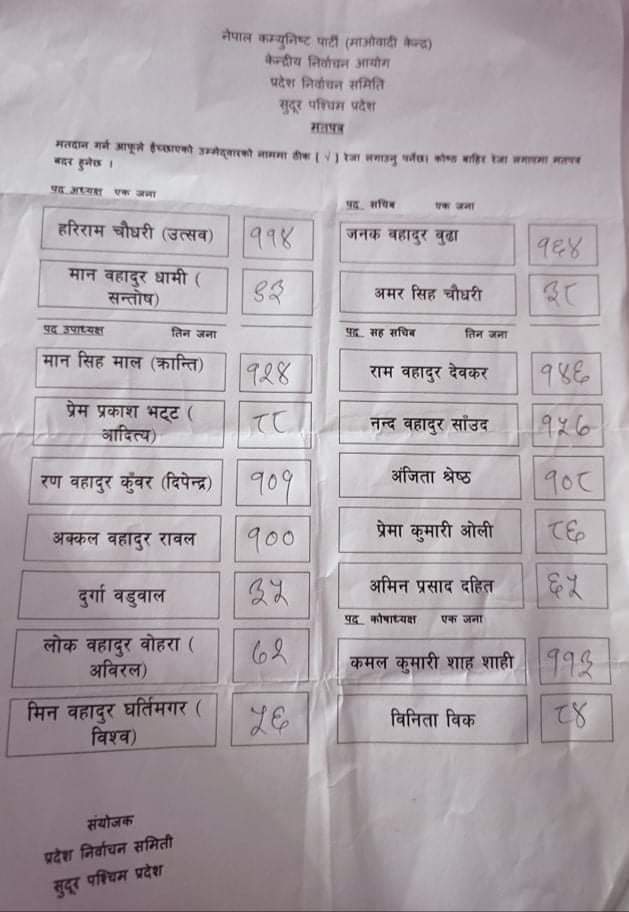 नेपाल कम्युनिष्ट पार्टी (माओवादी केन्द्र)
केन्द्रीय निर्वाचन आयोग
प्रदेश निर्वाचन समिति
सुदूर पश्चिम प्रदेश
मतपत्र
मतदान गर्न आफूले ईच्छाएको उम्मेद्वारको नाममा ठीक ( √ ) रेजा लगाउनु पर्नेछ। कोष्ठ बाहिर रेजा लगाएमा मतपत्र
बदर हुनेछ ।
पद अध्यक्ष एक जना
हरिराम चौधरी (उत्सव) ११४
मान वहादुर धामी (
सन्तोष) ९३
पद उपाध्यक्ष तिन जना
मान सिह माल (क्रान्ति) १२४
प्रेम प्रकाश भट्ट (
आदित्य) ८८
रण वहादुर कुँवर (दिपेन्द्र) १०१
अक्कल वहादुर रावल १००
दुर्गा वडुवाल ३५
लोक वहादुर वोहरा (
अविरल) ७२
मिन वहादुर घर्तिमगर (
विश्व) ५६
पद सचिब एक जना
जनक वहादुर वुढा १६४
अमर सिह चौधरी ३८
पद सह सचिब तिन जना
राम वहादुर देवकर १४६
नन्द वहादुर साँउद १५७
अंजिता श्रेष्ठ १०८
प्रेमा कुमारी ओली ८६
अमिन प्रसाद दहित ६५
पद कोषाध्यक्ष एक जना
कमल कुमारी शाह शाही ११३
विनिता विक ८४
संयोजक
प्रदेश निर्वाचन समिती
सुदूर पश्चिम प्रदेश